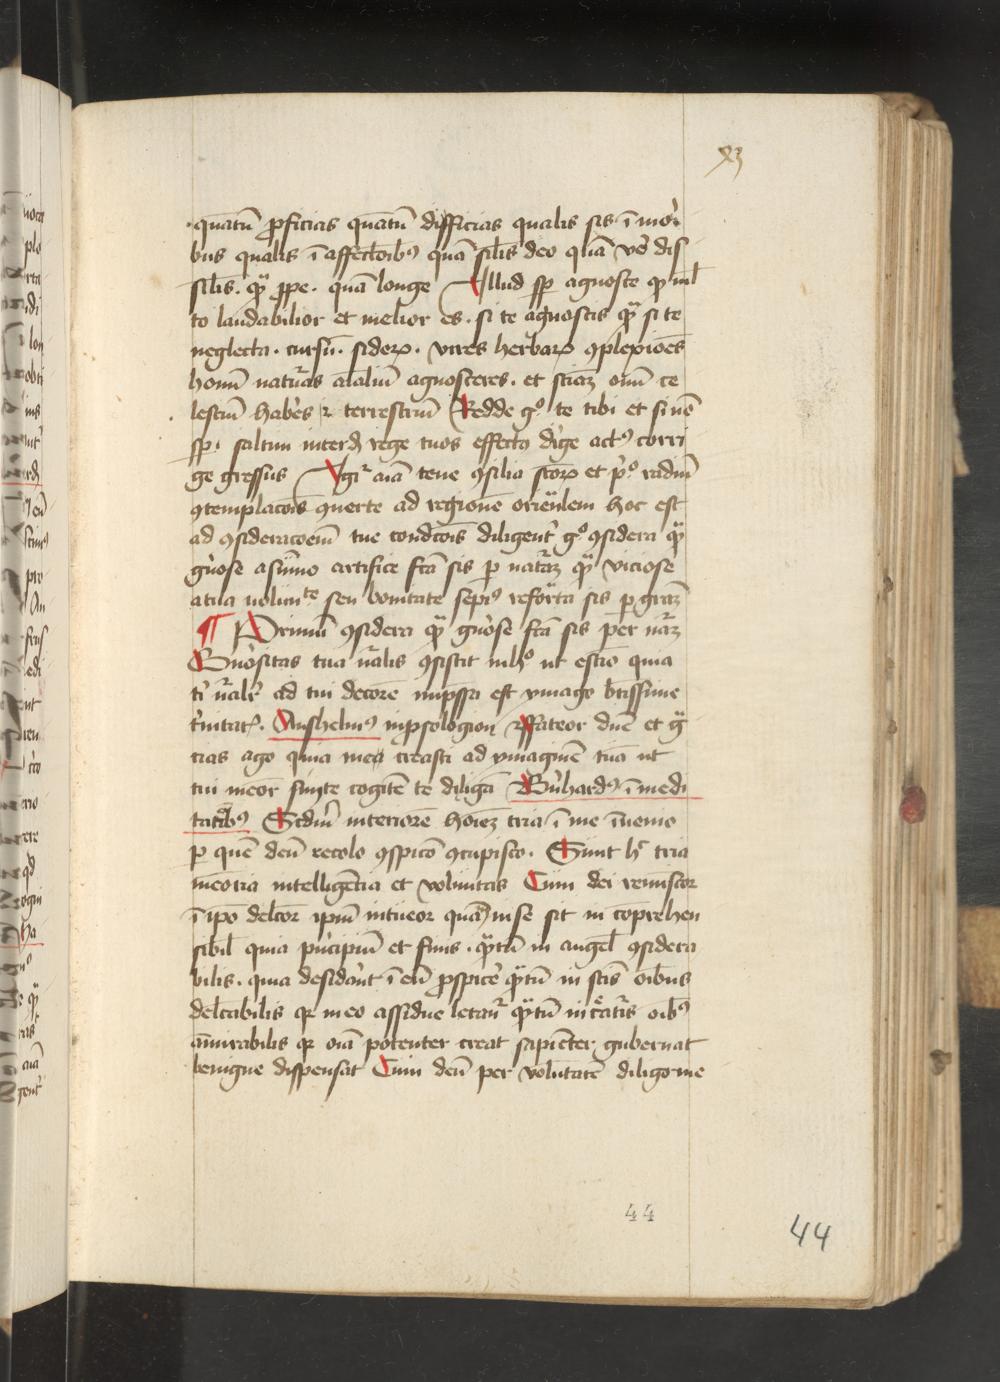 xj
quātū ꝓficias quātū difficias qualis sis ī mori
bus qualis ī affectōib⁹ quā siĺis deo quā ve dis
siĺis. qͣ ꝓpe. quā longe Illud sp agnosce ꝙ mĺ
to laudabilior et melior es. si te agnoscis qͣ si te
neglecta. cursū. sideꝝ. vires herbaꝝ ꝯplexiōes
homī naturas aīaliū agnosceres. et sciāꝫ oīm ce
lestiū habes ⁊ terrestriū Redde gͦ te tibi et si nō
sp. saltim interdū rege tuos effectꝰ dirige act⁹ corri
ge gressus Igr aīa tene ꝯsilia scōꝝ et pͥͦ radiū
ꝯtemplacōis ꝯuerte ad regionē oriētalem hoc est
ad ꝯsideracōem tue condicōis diligent gͦ ꝯsidera qͣ
gnose a sūmo artifice fcā sis p naturāꝫ qͣ viciose
a tua volūnte seu bonitate sepiꝰ reforta sis p graꝫ
¶ Primū ꝯsidera qͣ gnose fcā sis per naꝫ
Gnositas tua nalis ꝯsistit in hͦ ut estīo quia
ti nalr ad tui decorē impssa est ymago btissime
trinitat. Anshelm⁹ in psologion ꝯffateor dne et gͣ
cias ago quia mea creasti ad ymaginē tuā ut
tui meor suīte cogitē te diligā Bnhard⁹ ī medi
tatōib⁹ Scdm interiorē hoīeꝫ tria ī me īuenio
p quē deū recolo ꝯspicio ꝯcupisco. Sunt h tria
meoria intelligētia et voluntas Cum dei reniscor
ī ipo delctor ipm intueor quā in se sit in coprehen
sibiĺ quia principiū et finis. qͣtū in angeĺ ꝯsidera
bilis. quia desidant ī eū ꝓspice qͣtū in scis oībus
delcabilis qr in eo assidue letant qͣtū in creatis oīb⁹
āmirabilis qr oīa potenter creat sapiēter gubernat
benigne dispensat Cum deū per volūtatē diligo me
44
44